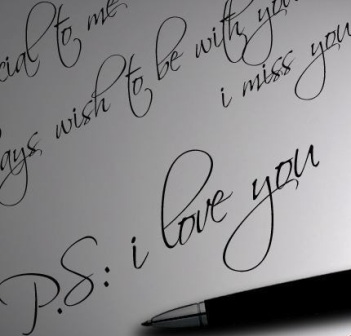 to me
wish to be with you
i miss you
P.S: i love you